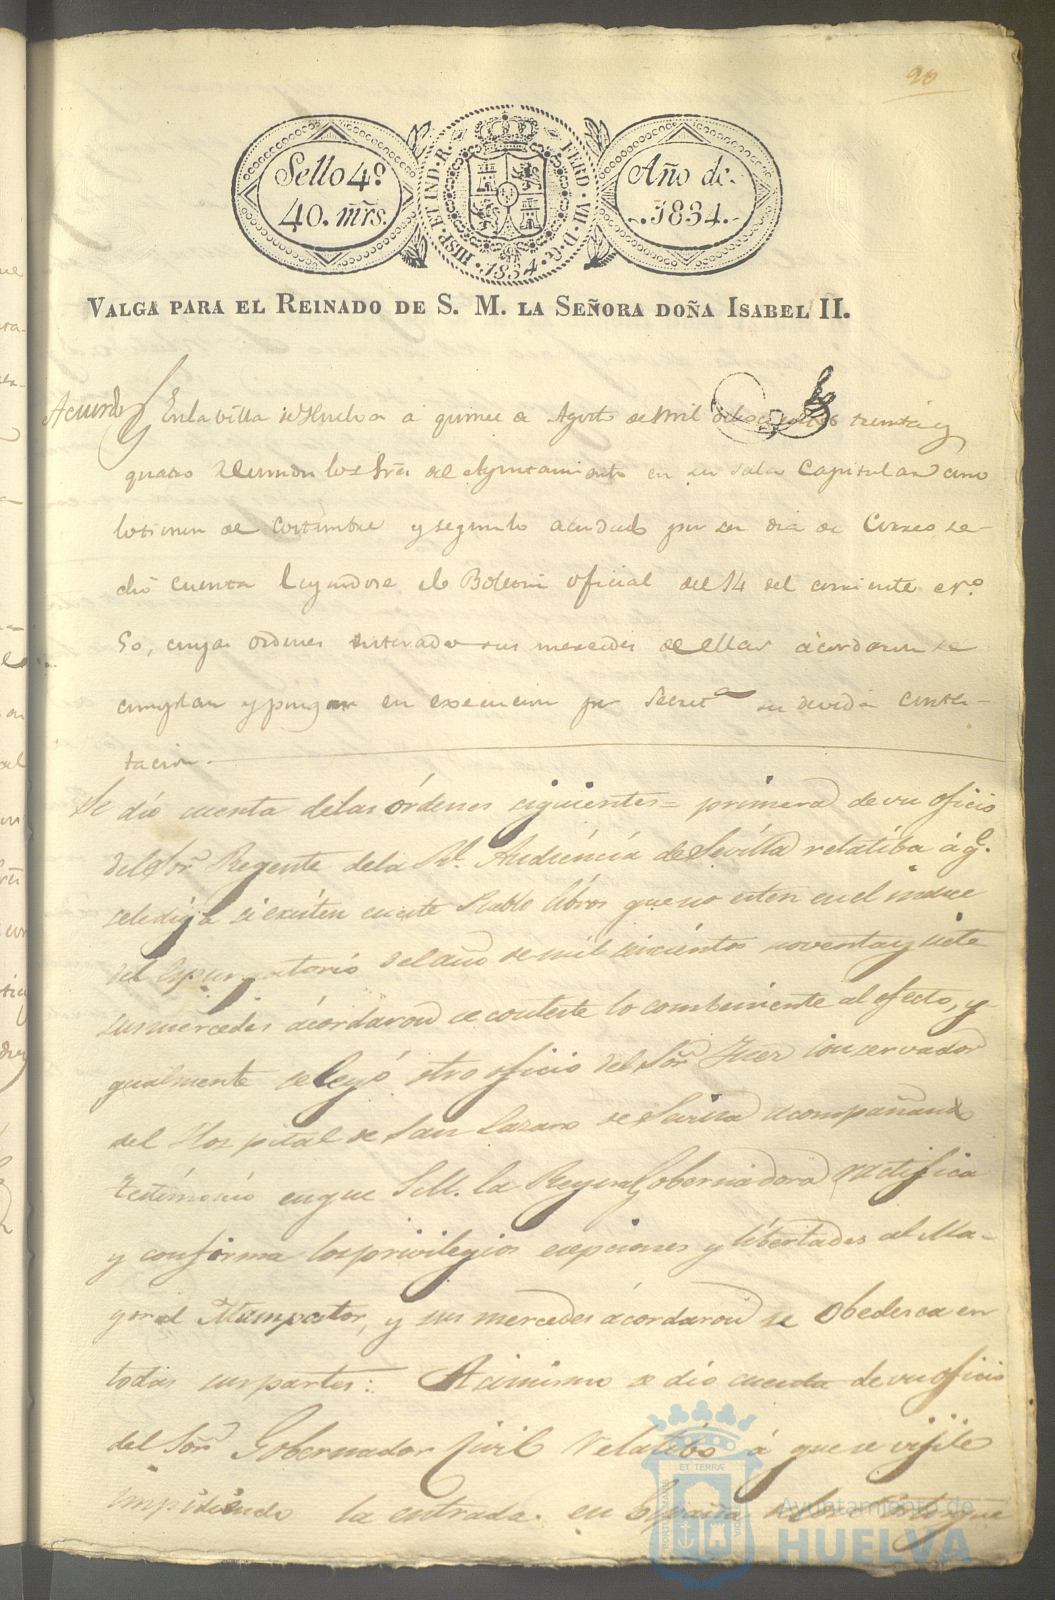 20
Sello 4º
40. mrs.
HISP. ET IND. R. FERD. VII. D. G.
1834
Año de
1834.
VALGA PARA EL REINADO DE S. M. LA SEÑORA DOÑA ISABEL II.
Acuerdo
En la villa de Huelva a quince de Agosto de mil ochocientos treinta y
quatro reunidos los Sres. del Ayuntamiento en su sala Capitular como
lo tienen de costumbre y segun lo acordado por ser dia de Correo se
dió cuenta leyendose el Boletin oficial del 14 del corriente nº
50, cuyas ordenes enterados sus mercedes de ellas acordaron se
cumplan y pongan en execucion por Secreta su devida contes-
tacion.
Se dió cuenta de las órdenes siguientes = primera de un oficio
del Sor. Regente de la Rl. Audiéncia de Sevilla relatiba á qe.
se le diga si existen en este Pueblo libros que no esten en el indice
del Espurgatorio del año de mil seiscientos noventa y siete
sus mercedes acordaron se conteste lo combeniente al efecto, y
gualmente se leyó otro oficio del Sor. Juez conservador
del Hospital de San Lazaro de Sevilla acompañando
testimonio en que S. M. la Reyna Gobernadora ractifica
y confirma los privilegios exepciones y libertades al Ma-
yoral Mampostor, y sus mercedes acordaron se obedesca en
todas sus partes: Acimismo se dió cuenta de un oficio
del Sor. Gobernador Civil relatibo á que se vijile
impidiendo la entrada en España de
ET TERRÆ
Ayuntamiento de
HUELVA